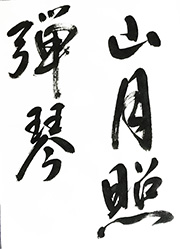 山月照
弾琴